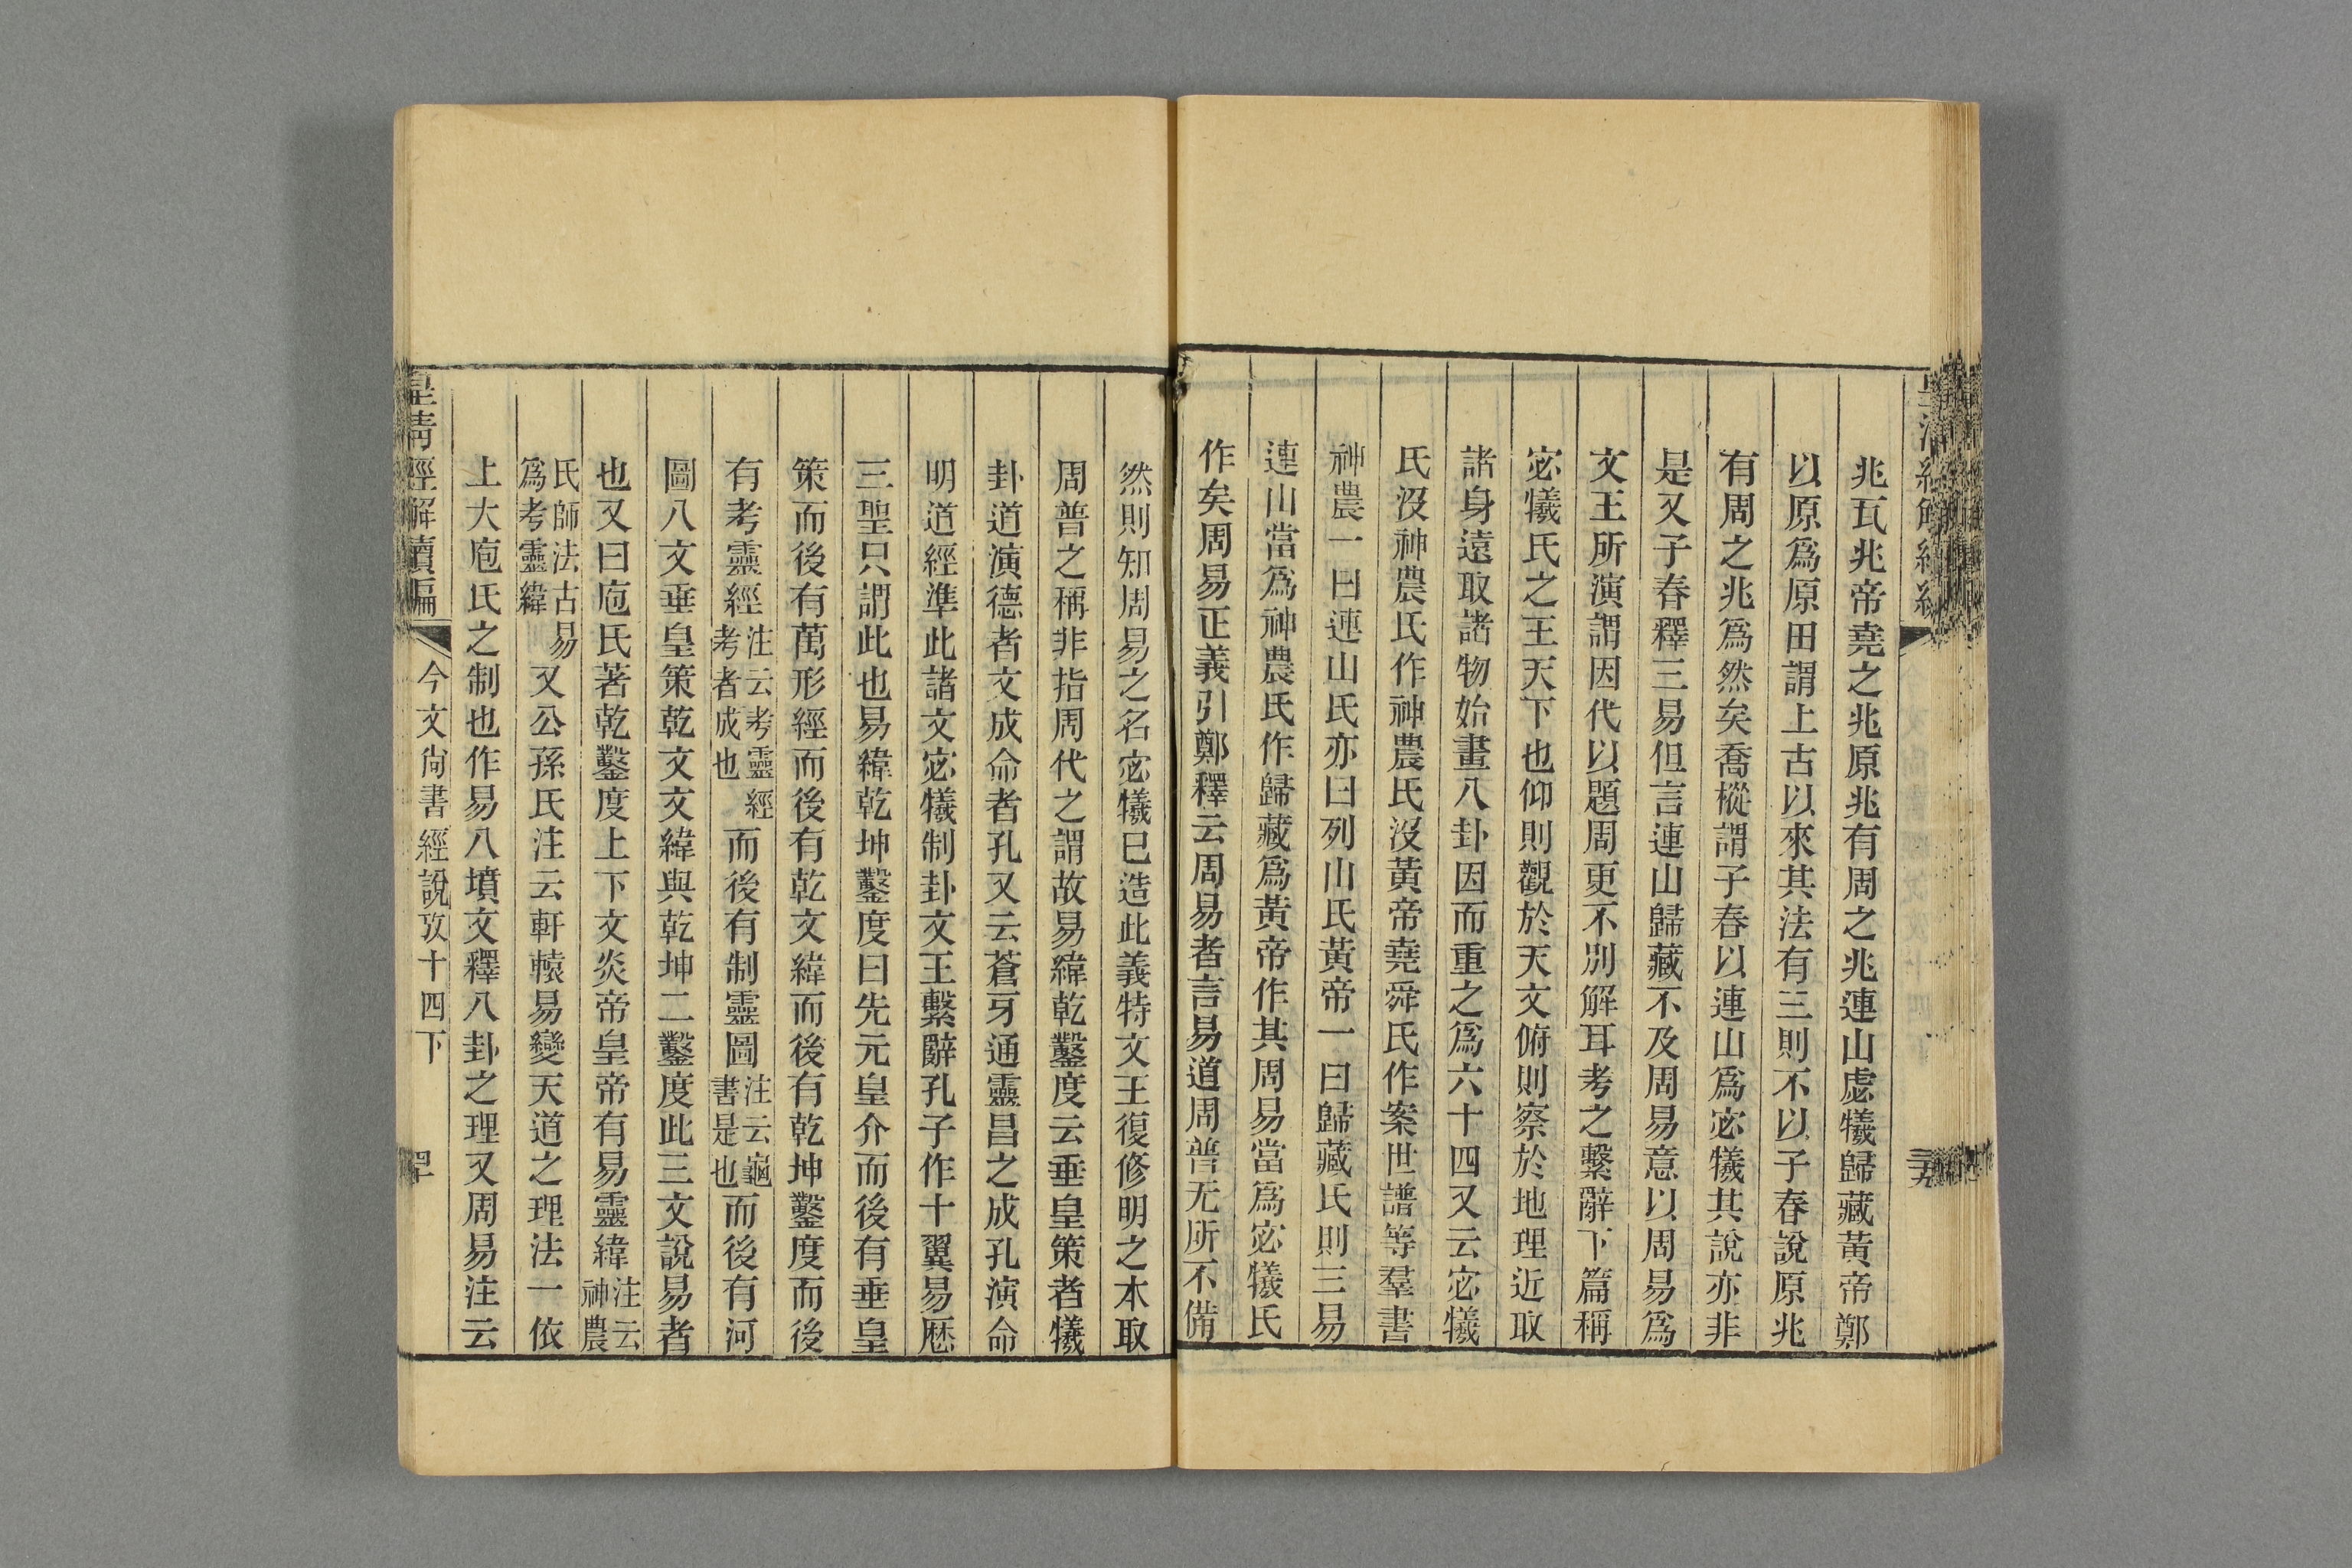 兆瓦兆帝堯之兆原兆有周之兆連山虙犧歸藏黃帝鄭
以原爲原田謂上古以來其法有三則不以子春說原兆
有周之兆爲然矣喬樅謂子春以連山爲宓犧其說亦非
是又子春釋三易但言連山歸藏不及周易意以周易爲
文王所演謂因代以題周更不別解耳考之繫辭下篇稱
宓犧氏之王天下也仰則觀於天文俯則察於地理近取
諸身遠取諸物始畫八卦因而重之爲六十四又云宓犧
氏沒神農氏作神農氏沒黃帝堯舜氏作案世譜等羣書
神農一曰連山氏亦曰列山氏黃帝一曰歸藏氏則三易
連山當爲神農氏作歸藏爲黃帝作其周易當爲宓犧氏
作矣周易正義引鄭釋云周易者言易道周普无所不備
然則知周易之名宓犧已造此義特文王復修明之本取
周普之稱非指周代之謂故易緯乾鑿度云垂皇策者犧
卦道演德者文成命者孔又云蒼牙通靈昌之成孔演命
明道經準此諸文宓犧制卦文王繫辭孔子作十翼易歷
三聖只謂此也易緯乾坤鑿度曰先元皇介而後有垂皇
策而後有萬形經而後有乾文緯而後有乾坤鑿度而後
有考靈經注云考靈經考者成也而後有制靈圖注云龜書是也而後有河
圖八文垂皇策乾文文緯與乾坤二鑿度此三文說易者
也又曰庖氏著乾鑿度上下文炎帝皇帝有易靈緯注云神農
氏師法古易爲考靈緯又公孫氏注云軒轅易變天道之理法一依
上大庖氏之制也作易八墳文釋八卦之理又周易注云
皇清經解續編
今文尚書經說攷十四下